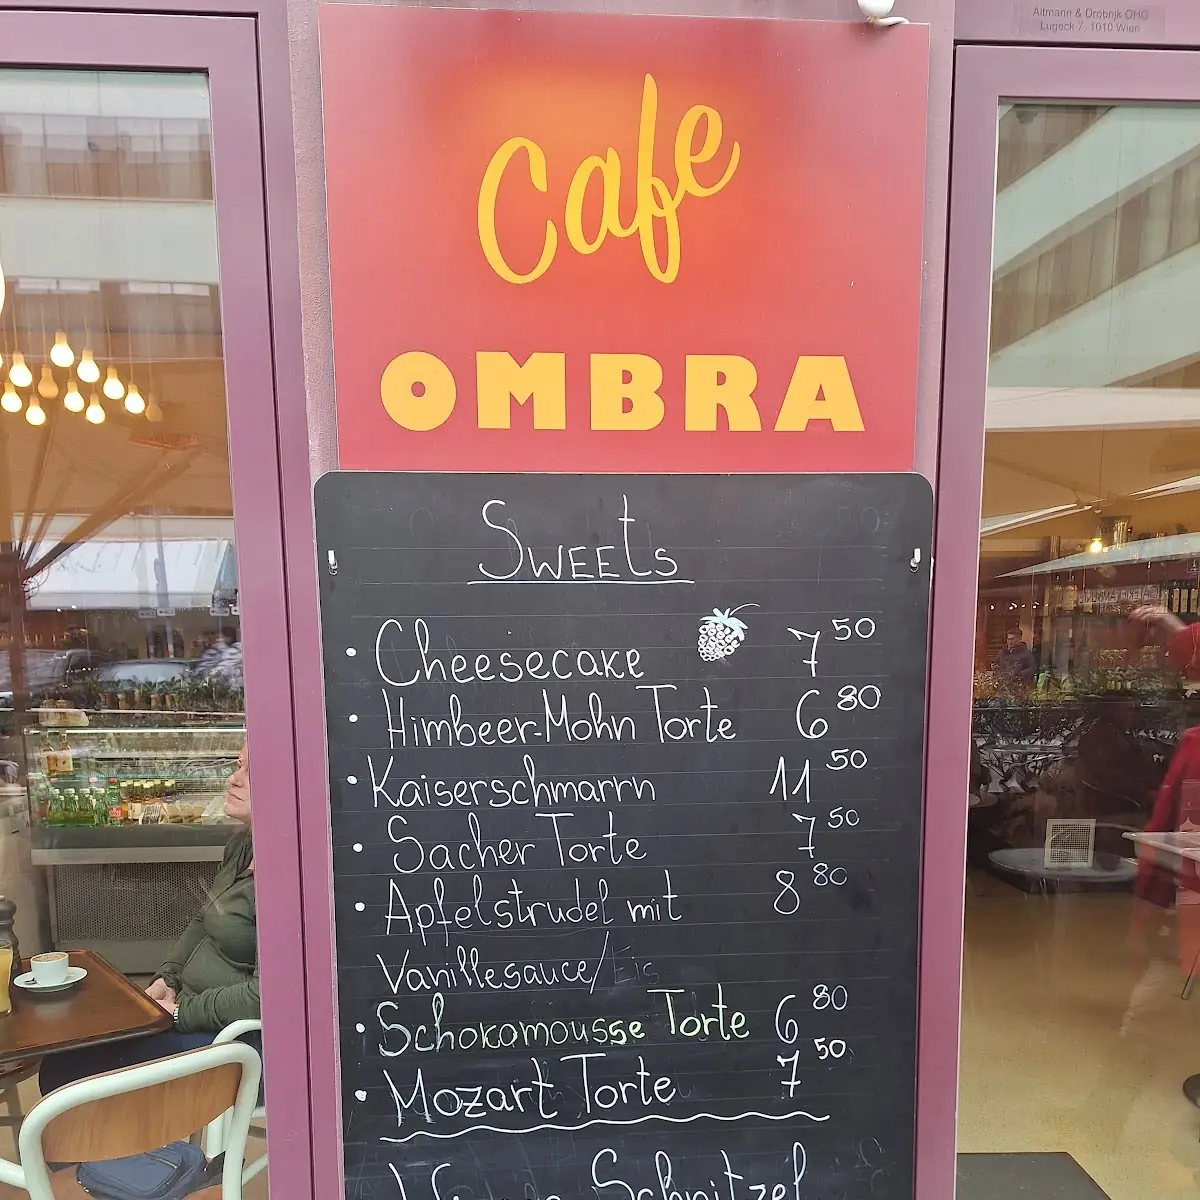 Altmann & Drobnjk OHG
Lugeck 7, 1010 Wien
Cafe
OMBRA
SWEETS
• Cheesecake 7 50
• Himbeer-Mohn Torte 6 80
• Kaiserschmarrn 11 50
• Sacher Torte 7 50
• Apfelstrudel mit 8 80
Vanillesauce/Eis
• Schokomousse Torte 6 80
• Mozart Torte 7 50
Schnitzel